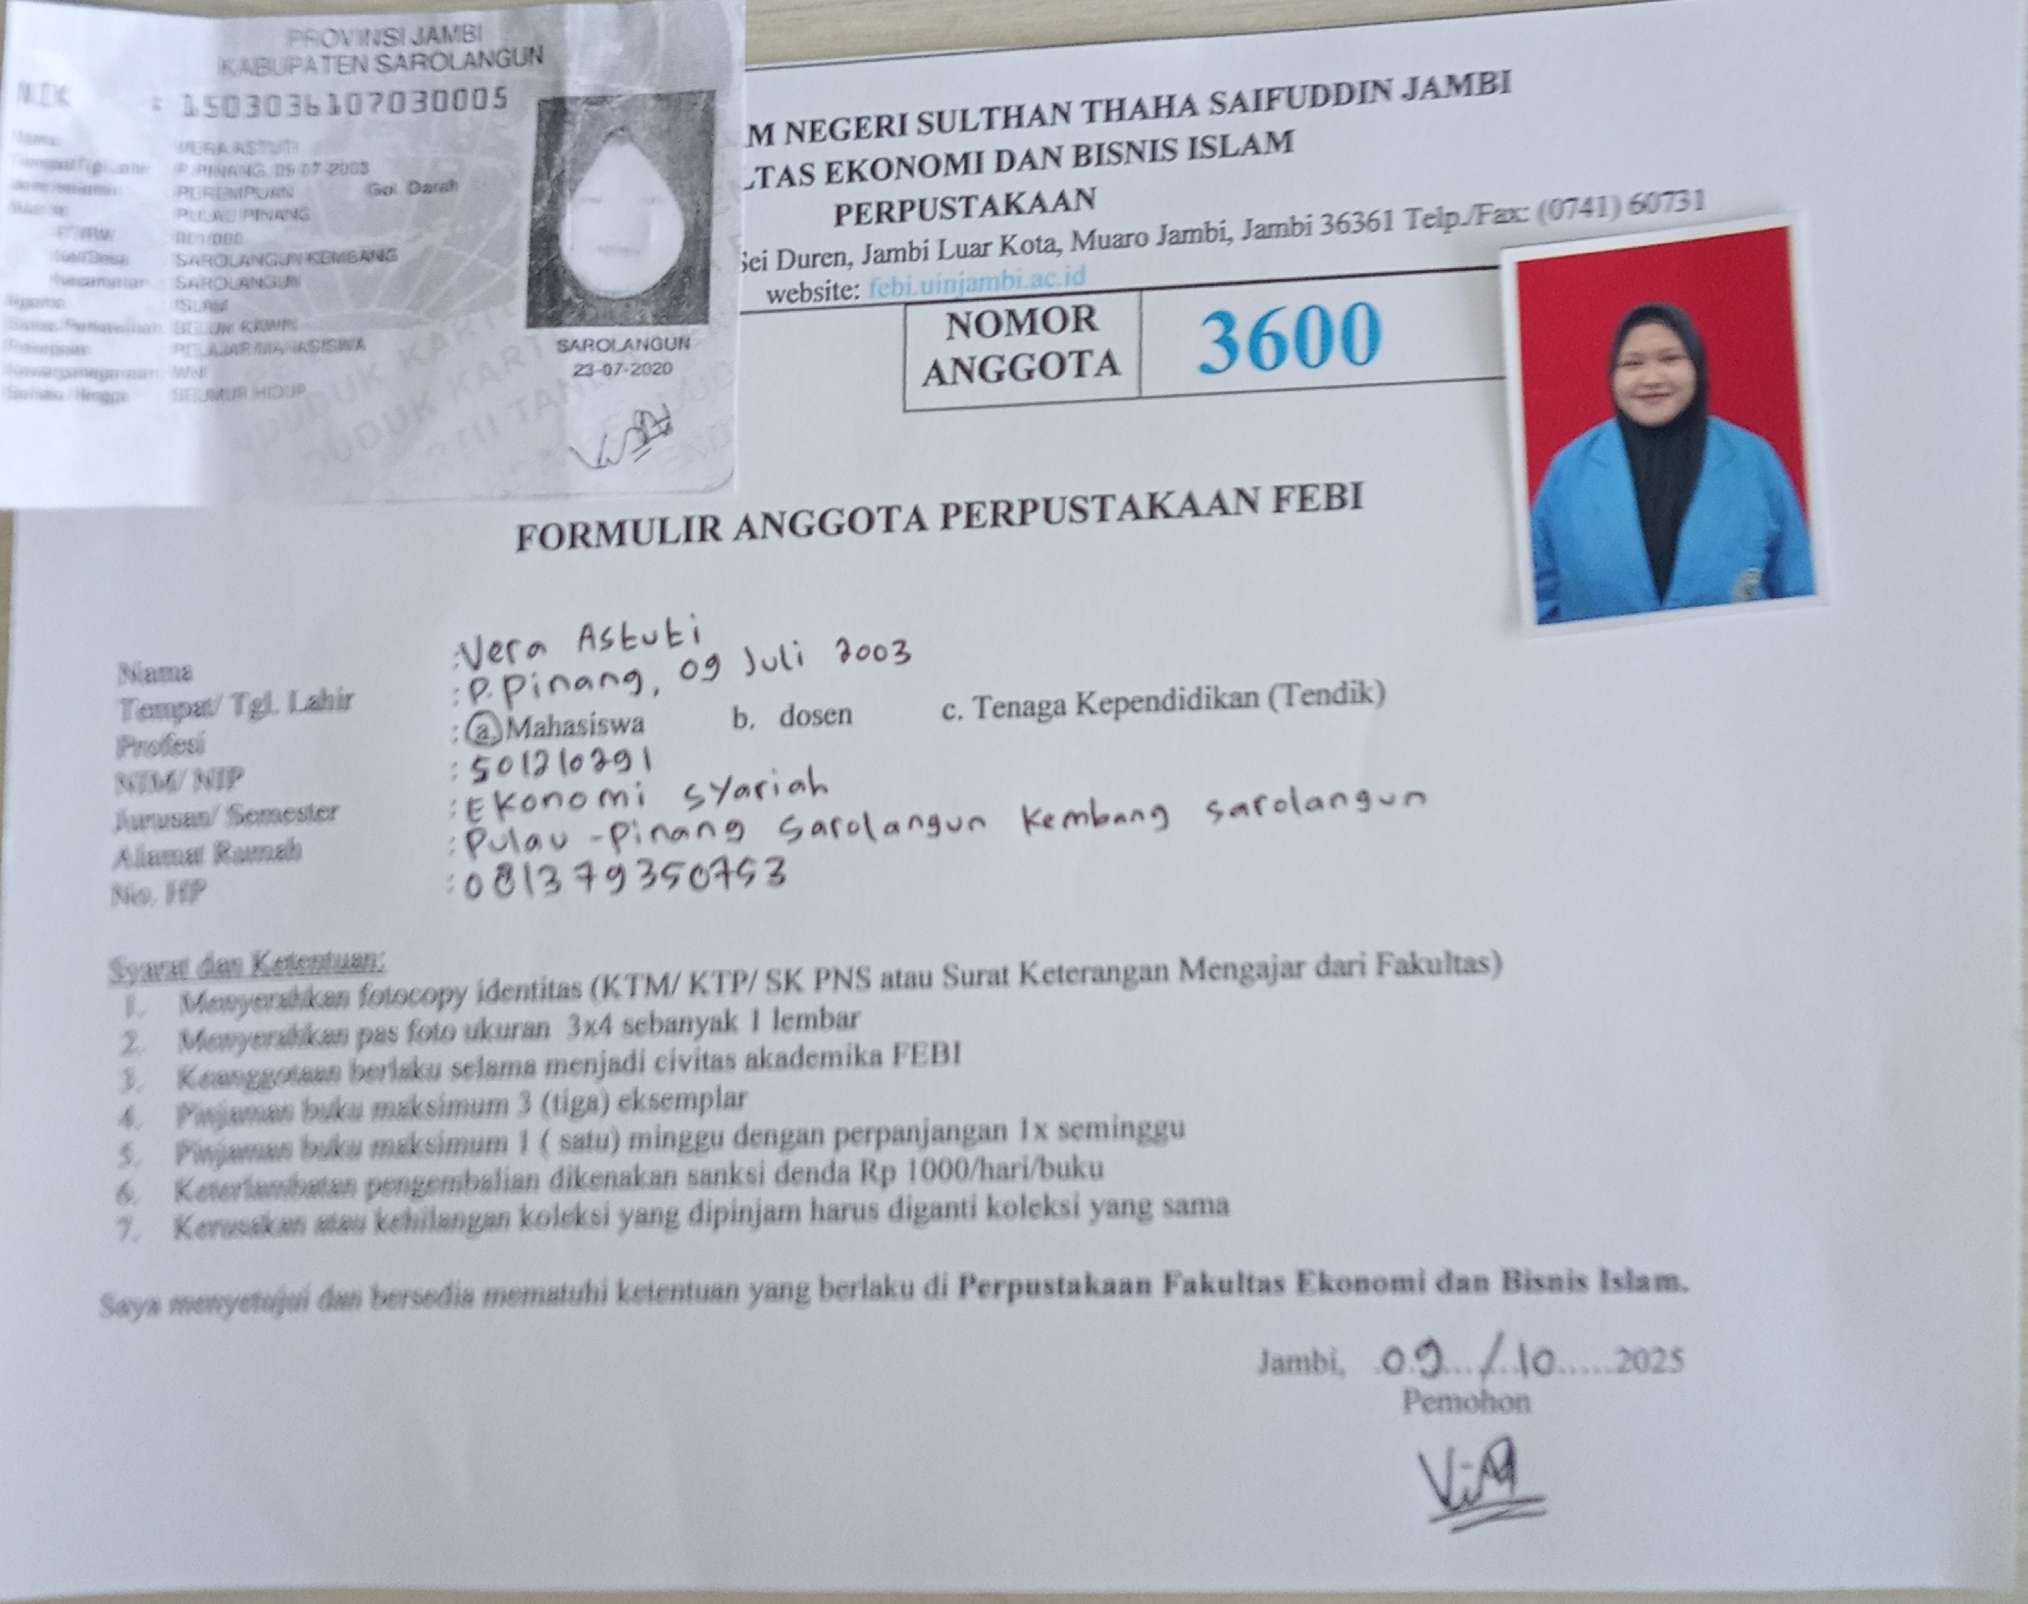 PROVINSI JAMBI
KABUPATEN SAROLANGUN
NIK : 1503036107030005
Nama VERA ASTUTI
P. PINANG, 09-07-2003
PEREMPUAN Gol. Darah
PULAU PINANG
RT/RW 001/000
Kel/Desa SAROLANGUN KEMBANG
Kecamatan SAROLANGUN
Agama ISLAM
BELUM KAWIN
PELAJAR/MAHASISWA
WNI
SEUMUR HIDUP
SAROLANGUN
23-07-2020
M NEGERI SULTHAN THAHA SAIFUDDIN JAMBI
TAS EKONOMI DAN BISNIS ISLAM
PERPUSTAKAAN
Sei Duren, Jambi Luar Kota, Muaro Jambi, Jambi 36361 Telp./Fax: (0741) 60731
website: febi.uinjambi.ac.id
NOMOR ANGGOTA 3600
FORMULIR ANGGOTA PERPUSTAKAAN FEBI
Nama : Vera Astuti
Tempat/ Tgl. Lahir : P. Pinang, 09 Juli 2003
Profesi : a. Mahasiswa b. dosen c. Tenaga Kependidikan (Tendik)
NIM/ NIP : 501210291
Jurusan/ Semester : Ekonomi Syariah
Alamat Rumah : Pulau - Pinang Sarolangun Kembang Sarolangun
No. HP : 081379350753
Syarat dan Ketentuan:
1. Menyerahkan fotocopy identitas (KTM/ KTP/ SK PNS atau Surat Keterangan Mengajar dari Fakultas)
2. Menyerahkan pas foto ukuran 3x4 sebanyak 1 lembar
3. Keanggotaan berlaku selama menjadi civitas akademika FEBI
4. Pinjaman buku maksimum 3 (tiga) eksemplar
5. Pinjaman buku maksimum 1 ( satu) minggu dengan perpanjangan 1x seminggu
6. Keterlambatan pengembalian dikenakan sanksi denda Rp 1000/hari/buku
7. Kerusakan atau kehilangan koleksi yang dipinjam harus diganti koleksi yang sama
Saya menyetujui dan bersedia mematuhi ketentuan yang berlaku di Perpustakaan Fakultas Ekonomi dan Bisnis Islam.
Jambi, 09 / 10 2025
Pemohon